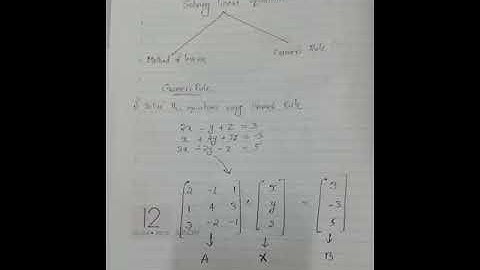 Solving linear equations
Method of Inverse
Cramer's Rule
Cramer's Rule
Solve the equations using Cramer's Rule
2x - y + z = 3
x + 4y + 3z = -3
3x - 2y - z = 5
2 -1 1
1 4 3
3 -2 -1
x
y
z
=
3
-3
5
A X B
12